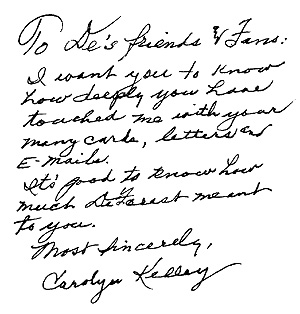 To De's friends & Fans:
I want you to know
how deeply you have
touched me with your
many cards, letters and
E-mails.
It's good to know how
much DeForest meant
to you.
Most Sincerely,
Carolyn Kelley